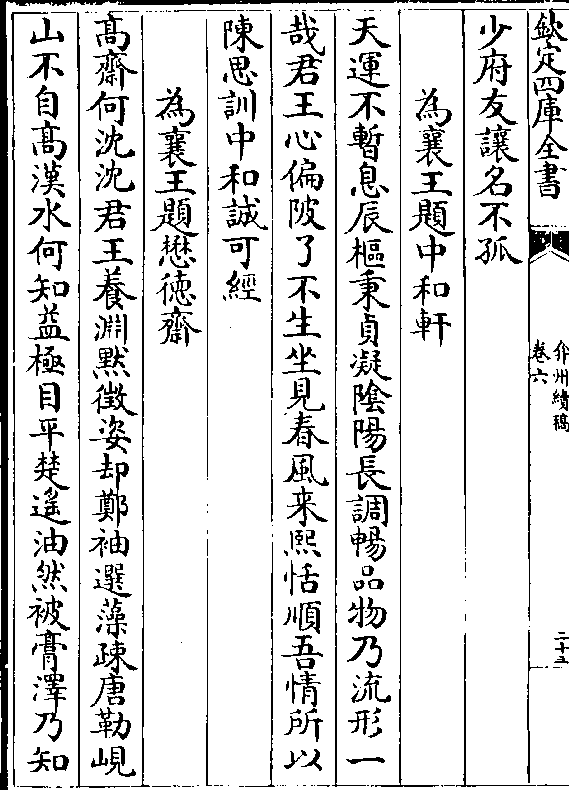 欽定四庫全書
弇州續稿
卷六
二十五
少府友讓名不孤
為襄王題中和軒
天運不暫息辰樞秉貞凝陰陽長調暢品物乃流形一
哉君王心偏陂了不生坐見春風来熙恬順吾情所以
陳思訓中和誠可經
為襄王題懋德齋
高齋何沈沈君王養淵黙徴姿却鄭袖選藻疎唐勒峴
山不自高漢水何知益極目平楚遥油然被膏澤乃知